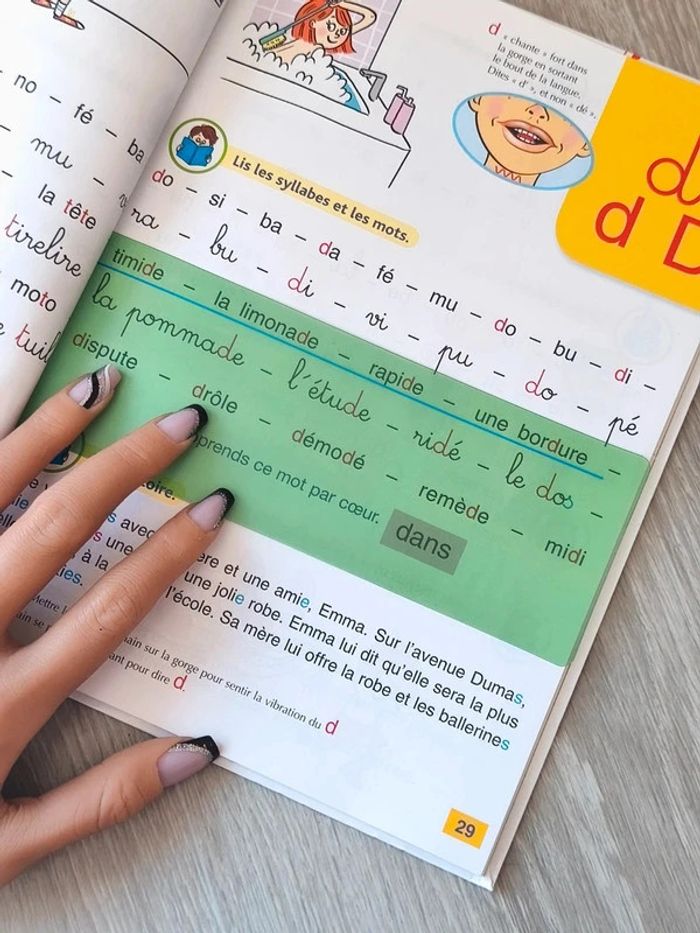 no – fé – ba
mu –
la tête
tirelire
moto
tuil
d « chante » fort dans
la gorge en sortant
le bout de la langue.
Dites « d' », et non « dé ».
d
d D
Lis les syllabes et les mots.
do – si – ba – da – fé – mu – do – bu – di –
ra – bu – di – vi – pu – do – pé
timide – la limonade – rapide – une bordure –
la pommade – l'étude – ridé – le dos –
dispute – drôle – démodé – remède – midi
prends ce mot par cœur. dans
oire.
avec ère et une amie, Emma. Sur l'avenue Dumas,
une une jolie robe. Emma lui dit qu'elle sera la plus
à la l'école. Sa mère lui offre la robe et les ballerines
ies.
Mettre
main sur la gorge pour sentir la vibration du d
ant pour dire d.
29